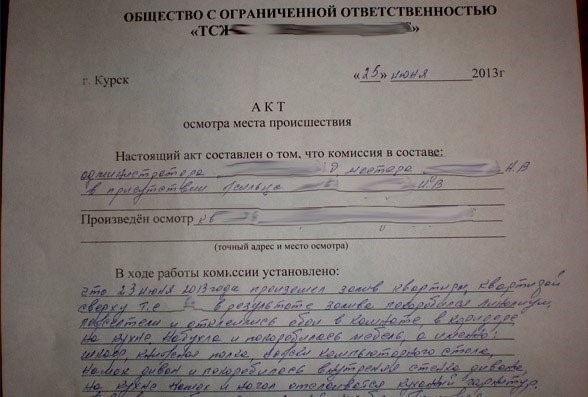 ОБЩЕСТВО С ОГРАНИЧЕННОЙ ОТВЕТСТВЕННОСТЬЮ
«ТСЖ »
г. Курск « 25 » июня 2013г
АКТ
осмотра места происшествия
Настоящий акт составлен о том, что комиссия в составе:
администратора мастера Н.В
в присутствии жильца
Произведён осмотр кв
(точный адрес и место осмотра)
В ходе работы комиссии установлено:
Что 23 июня 2013 года произошел залив квартиры квартирой
сверху т.е в результате залива покоробился линолеум,
и отклеились обои в комнате в коридоре
на кухне набухла и покоробилась мебель, а именно:
шкаф, книжная полка, компьютерного стола,
намок диван и покоробилась внутренняя стенка дивана,
на кухне намок и начал отслаиваться кухонный гарнитур.